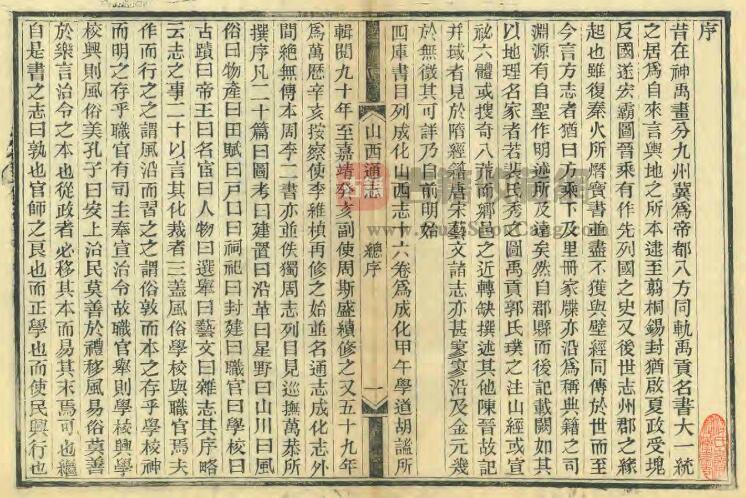 序
昔在神禹畫分九州冀爲帝都八方同軌禹貢名書大一統
之居爲自來言輿地之所本逮至翦桐錫封猶啟夏政受塊
反國遂宏霸圖晉乘有作先列國之史又後世志州郡之緣
起也雖復秦火所熸寶書並盡不獲與壁經同傳於世而至
今言方志者猶曰方乘下及里冊家牒亦沿爲稱典籍之司
淵源有自聖作明述所及遠矣然自郡縣而後記載闕如其
以地理名家者若裴氏秀之圖禹貢郭氏璞之注山經或宣
祕六體或搜奇八荒而鄉邑之近轉缺撰述其他陳晉故記
并域者見於隋經籍唐宋藝文諸志亦甚寥寥沿及金元幾
於無徵其可詳乃自前明始
四庫書目列成化山西志十六卷爲成化甲午學道胡謐所
山西通志 總序 一
輯閱九十年至嘉靖癸亥副使周斯盛續修之又五十九年
爲萬歷辛亥按察使李維楨再修之始並名通志成化志外
間絶無傳本周李二書亦並佚獨周志列目見巡撫萬恭所
撰序凡二十篇曰圖考曰建置曰沿革曰星野曰山川曰風
俗曰物產曰田賦曰戶口曰祠祀曰封建曰職官曰學校曰
古蹟曰帝王曰名宦曰人物曰選舉曰藝文曰雜志其序略
云志之事二十以言其化裁者三蓋風俗學校與職官焉夫
作而行之之謂風沿而習之之謂俗敦而本之存乎學校神
而明之存乎職官有司主奉宣治令故職官舉則學校興學
校興則風俗美孔子曰安上治民莫善於禮移風易俗莫善
於樂言治令之本也從政者必移其本而易其末焉可也繼
自是書之志曰孰也官師之良也而正學也而使民興行也